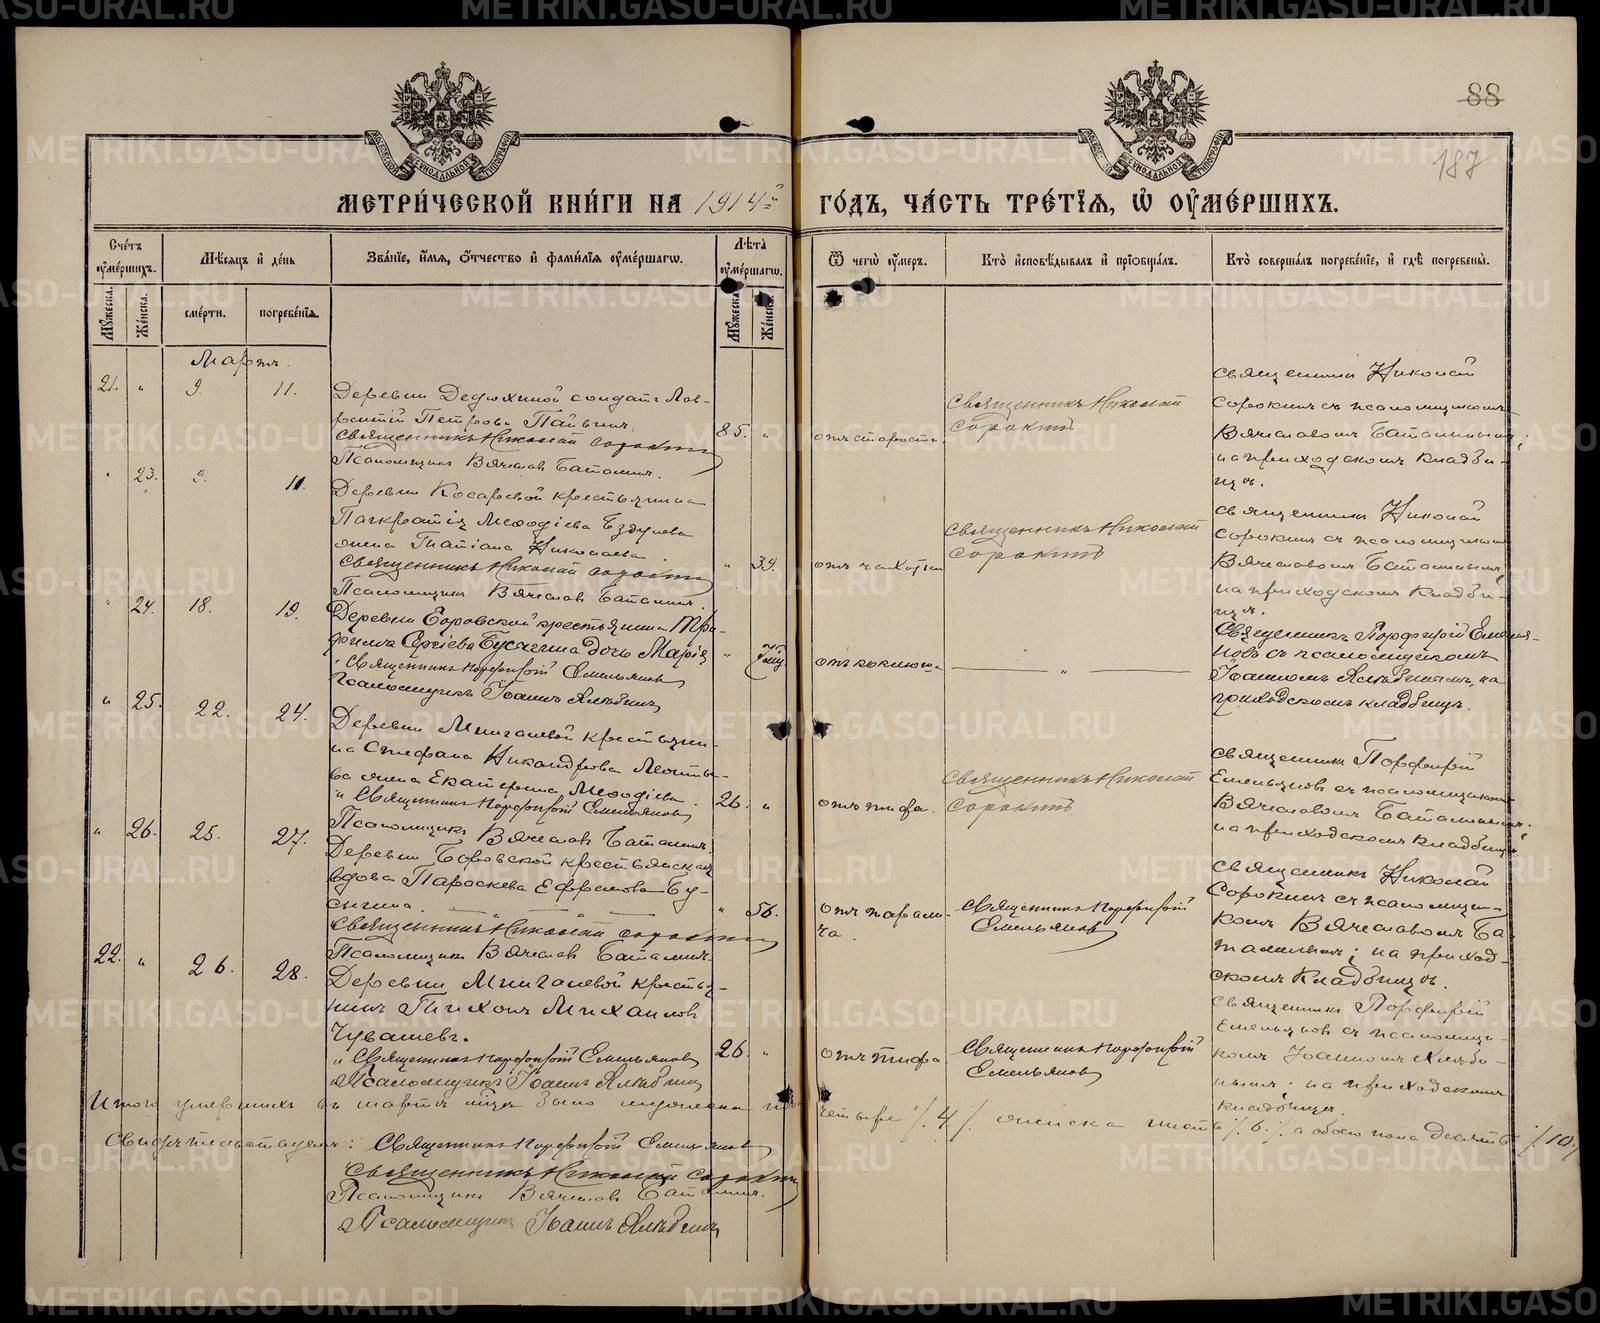 88
187
МОСКОВСКОЙ СѴНОДАЛЬНОЙ ТИПОГРАФІИ
МЕТРИ́ЧЕСКОЙ КНИ́ГИ НА 1914й
ГО́ДЪ, ЧА́СТЬ ТРЕ́ТЇѦ, Ѡ҆ ОУ҆МЕ́РШИХЪ.
Сче́тъ оу҆ме́ршихъ.
Мѣ́сѧцъ и҆ де́нь
Зва́нїе, и҆́мѧ, ѻ҆́тчество и҆ фами́лїѧ оу҆ме́ршагѡ.
Лѣ́та оу҆ме́ршагѡ.
Ѿ чегѡ̀ оу҆́меръ.
Кто̀ и҆сповѣ́дывалъ и҆ прїѡбща́лъ.
Кто̀ соверша́лъ погребе́нїе, и҆ гдѣ̀ погребены̀.
Мꙋ́жеска.
Же́нска.
сме́рти.
погребе́нїѧ.
Мꙋ́жеска.
Же́нска.
Мартъ.
21. " 9. 11.
Деревни Дедюхиной солдатъ Лав-
рентій Петровъ Пайвинъ.
Священникъ Николай Сорокинъ
Псаломщикъ Вячеславъ Баталинъ.
85. "
отъ старости
Священникъ Николай
Сорокинъ
Священникъ Николай
Сорокинъ съ псаломщикомъ
Вячеславомъ Баталинымъ;
на приходскомъ кладби-
щѣ.
" 23. 9. 11.
Деревни Косаревой крестьянина
Панкратія Меѳодіева
жена Татіана Николаева.
Священникъ Николай Сорокинъ
Псаломщикъ Вячеславъ Баталинъ.
" 39.
отъ чахотки
Священникъ Николай
Сорокинъ
Священникъ Николай
Сорокинъ съ псаломщикомъ
Вячеславомъ Баталинымъ;
на приходскомъ кладби-
щѣ.
" 24. 18. 19.
Деревни Боровской крестьянина Тро-
фима Сергіева Бусыгина дочь Марія
Священникъ Порфирій Емельяновъ
Псаломщикъ Іоаннъ Хлѣбинъ
"
отъ коклюша
"
Священникъ Порфирій Емелья-
новъ съ псаломщикомъ
Іоанномъ Хлѣбинымъ, на
приходскомъ кладбищѣ.
" 25. 22. 24.
Деревни Мингалевой крестьяни-
на Стефана Никандрова
жена Екатерина Меѳодіева.
Священникъ Порфирій Емельяновъ
Псаломщикъ Вячеславъ Баталинъ.
26. "
отъ тифа.
Священникъ Николай
Сорокинъ
Священникъ Порфирій
Емельяновъ съ псаломщикомъ
Вячеславомъ Баталинымъ;
на приходскомъ кладбищѣ
" 26. 25. 27.
Деревни Боровской крестьянская
вдова Параскева Ефремова Бу-
сыгина.
Священникъ Николай Сорокинъ
Псаломщикъ Вячеславъ Баталинъ
" 56.
отъ парали-
ча.
Священникъ Порфирій
Емельяновъ
Священникъ Николай
Сорокинъ съ псаломщи-
комъ Вячеславомъ Ба-
талинымъ; на приход-
скомъ кладбищѣ.
22. " 26. 28.
Деревни Мингалевой крестья-
нинъ Тихонъ Михаиловъ
Чувашевъ.
Священникъ Порфирій Емельяновъ
Псаломщикъ Іоаннъ Хлѣбинъ
26. "
отъ тифа
Священникъ Порфирій
Емельяновъ
Священникъ Порфирій
Емельяновъ съ псаломщи-
комъ Іоанномъ Хлѣби-
нымъ; на приходскомъ
кладбищѣ.
Итого умершихъ въ мартѣ мцѣ было мужеска пола четыре /.4/. женска шесть /.6/. а обоего пола десять /.10/.
Свидѣтельствуемъ: Священникъ Порфирій Емельяновъ
Священникъ Николай Сорокинъ
Псаломщикъ Вячеславъ Баталинъ.
Псаломщикъ Іоаннъ Хлѣбинъ
METRIKI.GASO-URAL.RU